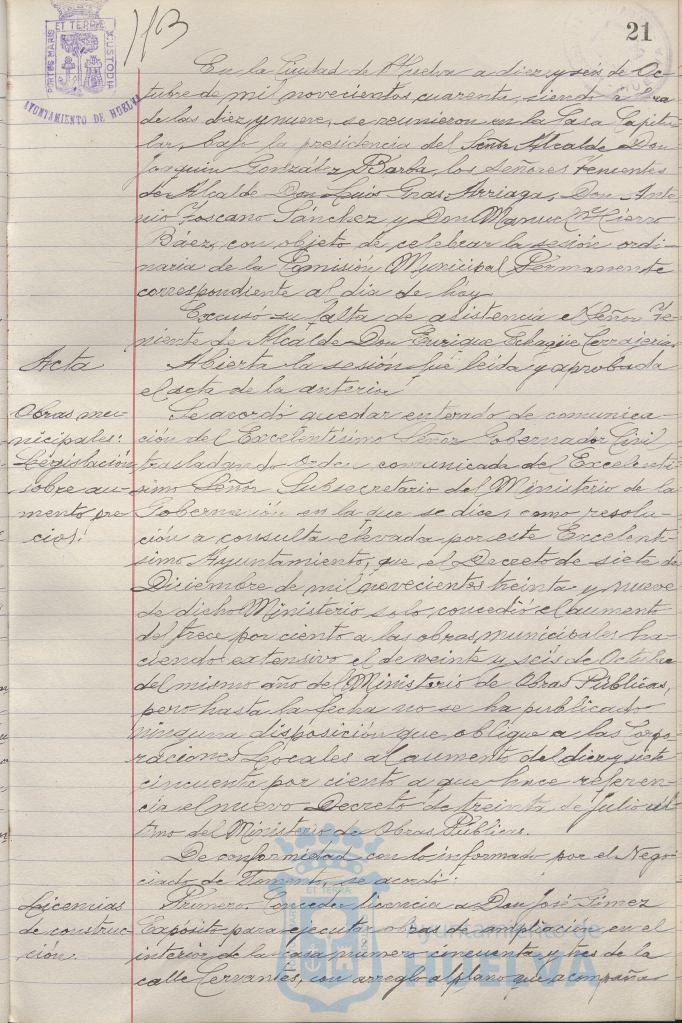 PORTUS MARIS ET TERRÆ CUSTODIA
AYUNTAMIENTO DE HUELVA
113
21
En la Ciudad de Huelva a diez y seis de Oc-
tubre de mil novecientos cuarenta, siendo la hora
de las diez y nueve, se reunieron en la Casa Capitu-
lar, bajo la presidencia del Señor Alcalde Don
Joaquin González Barba, los Señores Tenientes
de Alcalde Don Luis Gras Arriaga, Don Anto-
nio Toscano Sánchez y Don Manuel Mª Hierro
Báez, con objeto de celebrar la sesión ordi-
naria de la Comisión Municipal Permanente
correspondiente al dia de hoy.
Excusó su falta de asistencia el Señor Te-
niente de Alcalde Don Enrique Echagüe Cerrajeria.
Acta
Abierta la sesión fué leida y aprobada
el acta de la anterior.
Obras mu-
nicipales:
Legislación
sobre au-
mento pre-
cios.
Se acordó quedar enterado de comunica-
ción del Excelentísimo Señor Gobernador Civil
trasladando orden comunicada del Excelentí-
simo Señor Subsecretario del Ministerio de la
Gobernación en la que se dice, como resolu-
ción a consulta elevada por este Excelentí-
simo Ayuntamiento, que el Decreto de siete de
Diciembre de mil novecientos treinta y nueve
de dicho Ministerio solo concedió el aumento
del trece por ciento a las obras municipales ha-
ciendo extensivo el de veinte y seis de Octubre
del mismo año del Ministerio de Obras Públicas,
pero hasta la fecha no se ha publicado
ninguna disposición que oblique a las Corpo-
raciones Locales al aumento del diez y siete
cincuenta por ciento a que hace referen-
cia el nuevo Decreto de treinta de Julio úl-
timo del Ministerio de Obras Públicas.
De conformidad con lo informado por el Nego-
ciado de Fomento, se acordó:
Licencias
de construc-
ción.
Primero. Conceder licencia a Don José Gimez
Expósito para ejecutar obras de ampliación en el
interior de la casa numero cincuenta y tres de la
calle Cervantes, con arreglo al plano que acompaña
Ayuntamiento de
HUELVA